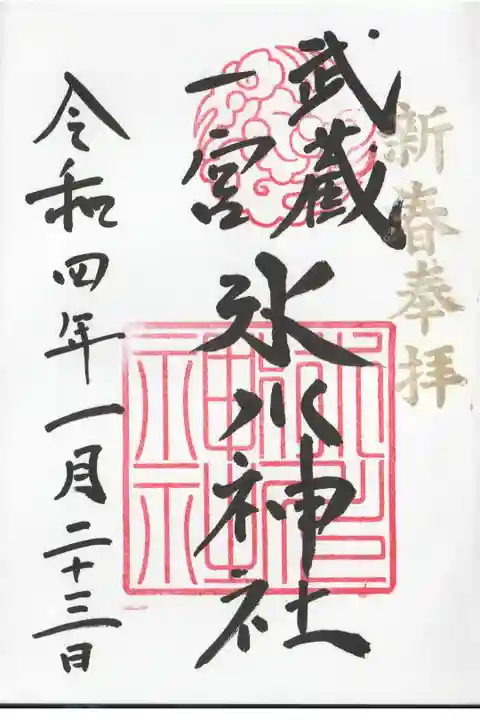 新春奉拝
武蔵
一宮
氷川神社
令和四年一月二十三日